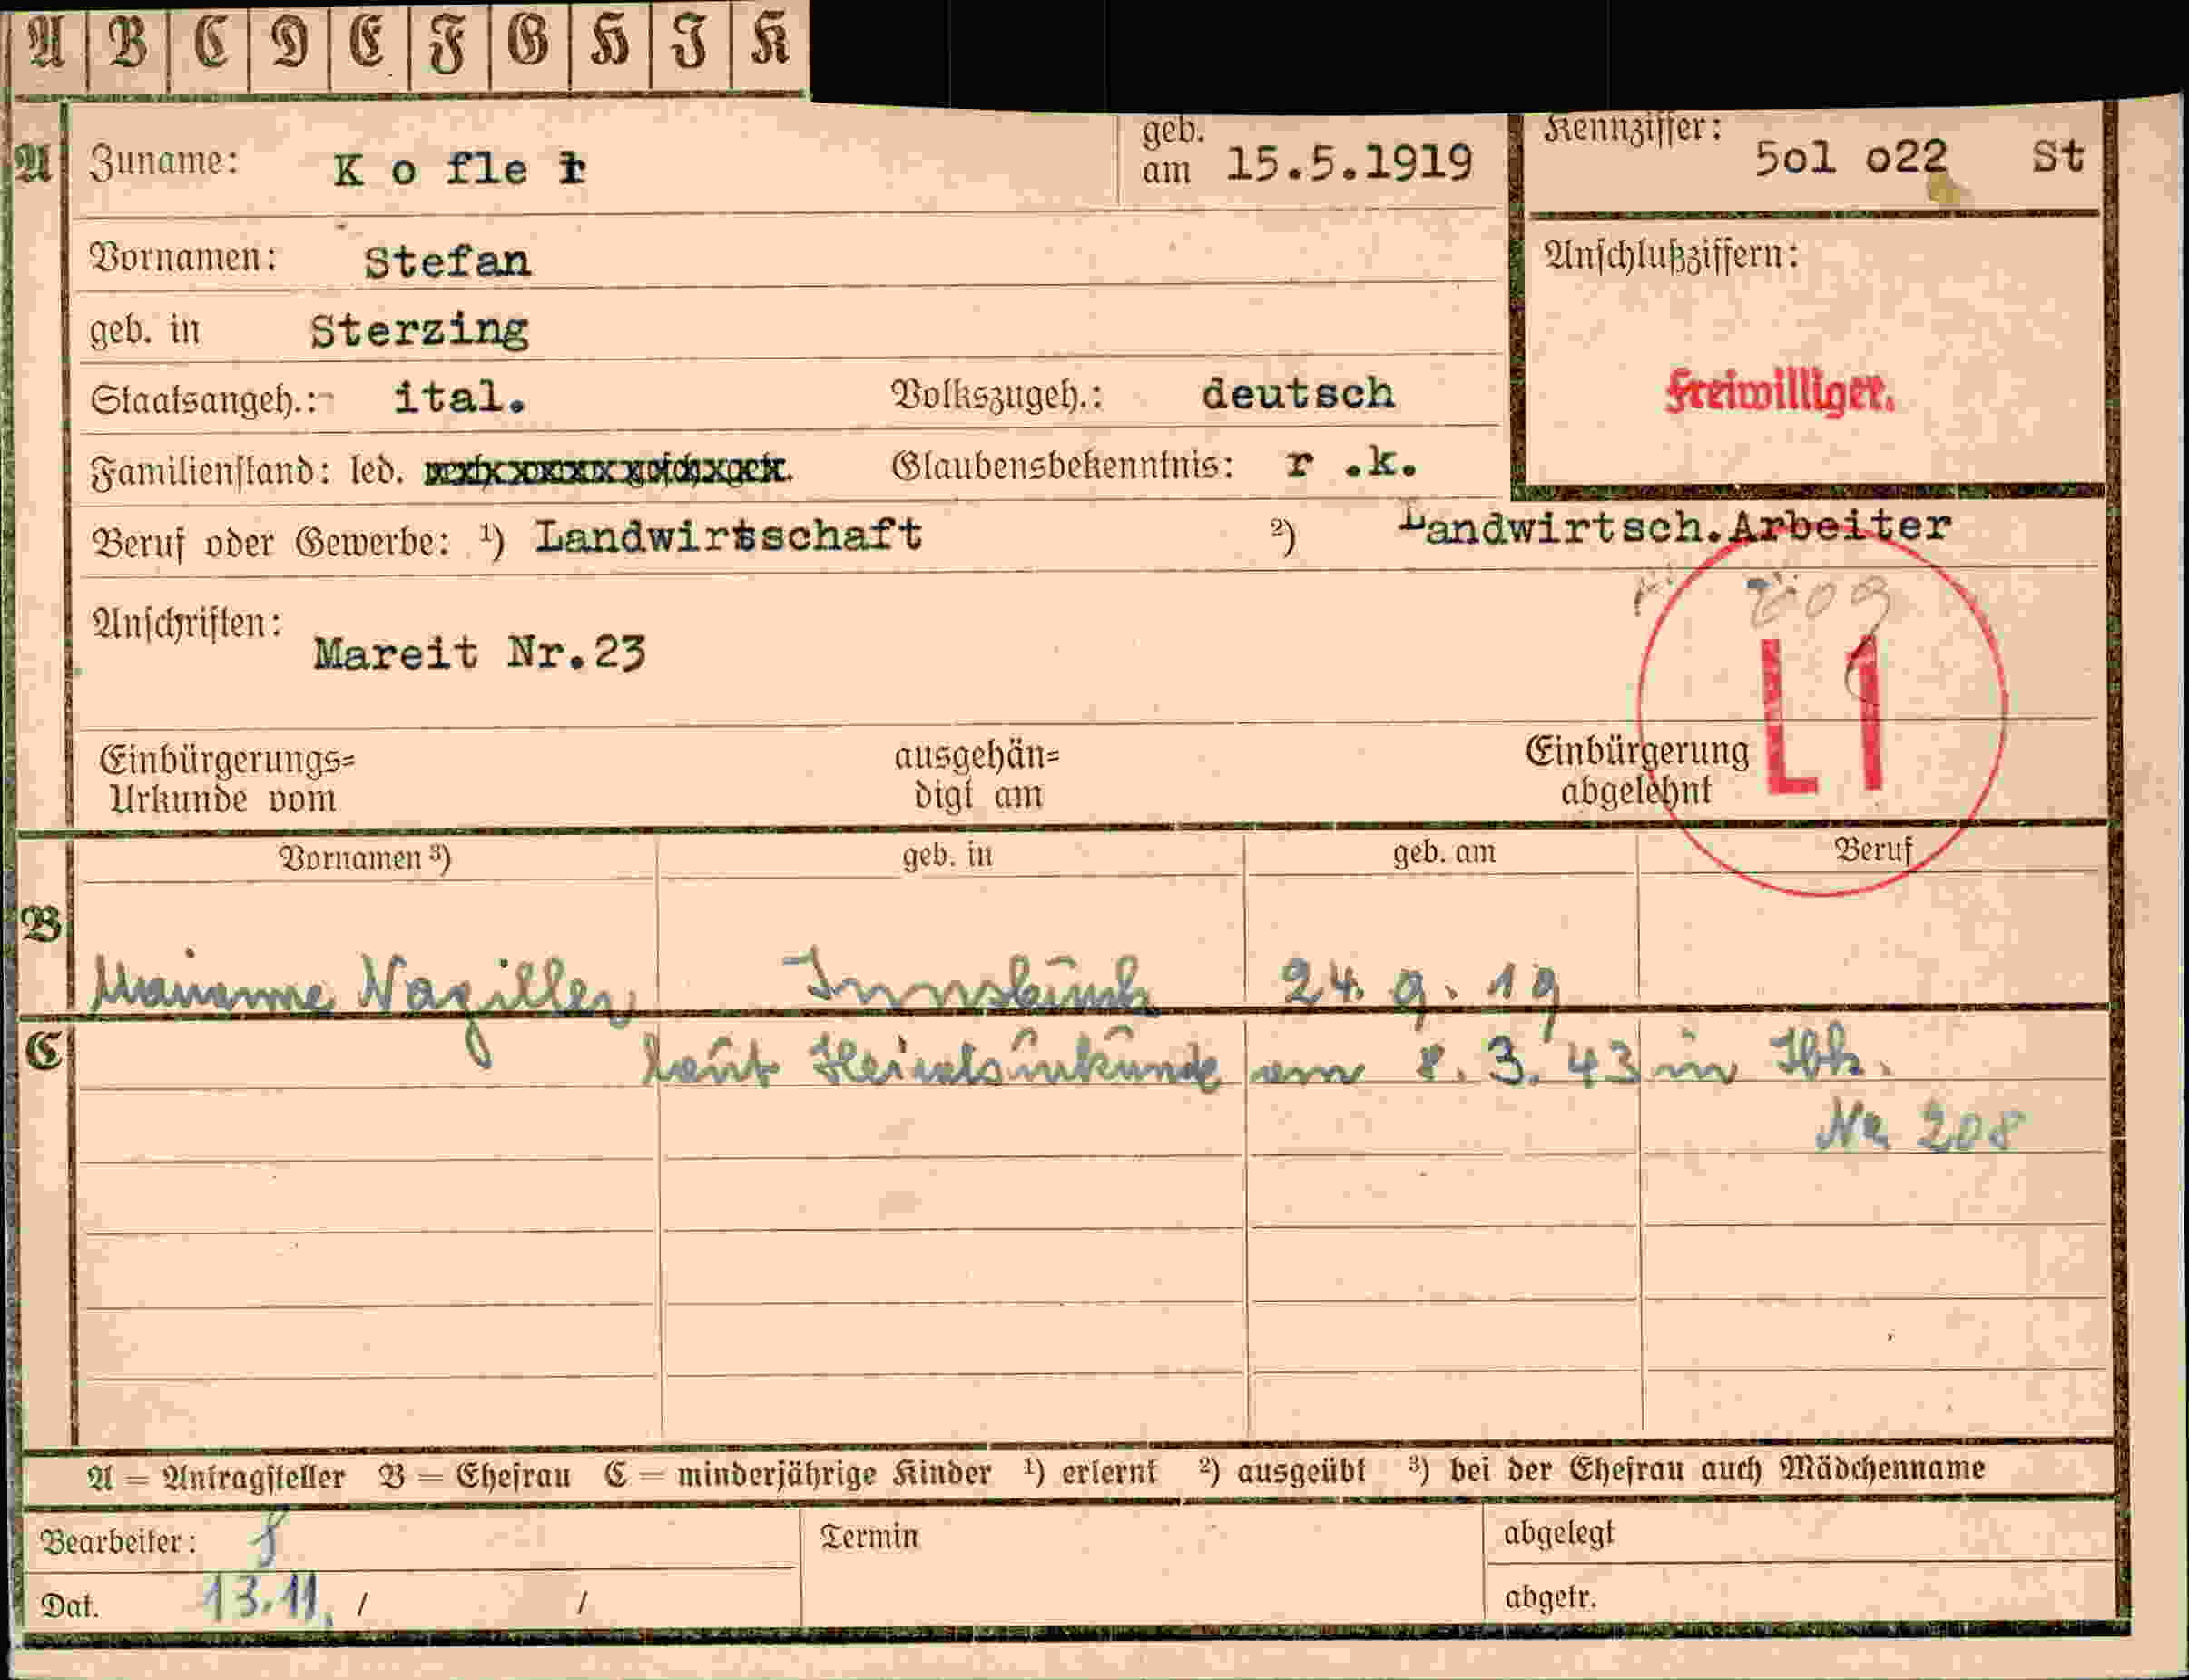 A B C D E F G H I K
A Zuname: K o f l e r geb. am 15.5.1919 Kennziffer: 5o1 o22 St
Vornamen: Stefan Anschlußziffern:
geb. in Sterzing
Staatsangeh.: ital. Volkszugeh.: deutsch Freiwilliger.
Familienstand: led. Glaubensbekenntnis: r .k.
Beruf oder Gewerbe: ¹) Landwirtschaft ²) Landwirtsch.Arbeiter
Anschriften:
Mareit Nr.23
L1
Einbürgerungs= ausgehän= Einbürgerung
Urkunde vom digt am abgelehnt
Vornamen ³) geb. in geb. am Beruf
B
Marianne Nagiller Innsbruck 24. 9. 19
C laut Heiratsurkunde am 8. 3. 43 in Ibk.
Nr. 208
A = Antragsteller B = Ehefrau C = minderjährige Kinder ¹) erlernt ²) ausgeübt ³) bei der Ehefrau auch Mädchenname
Bearbeiter: Termin abgelegt
Dat. 13.11. / / abgetr.